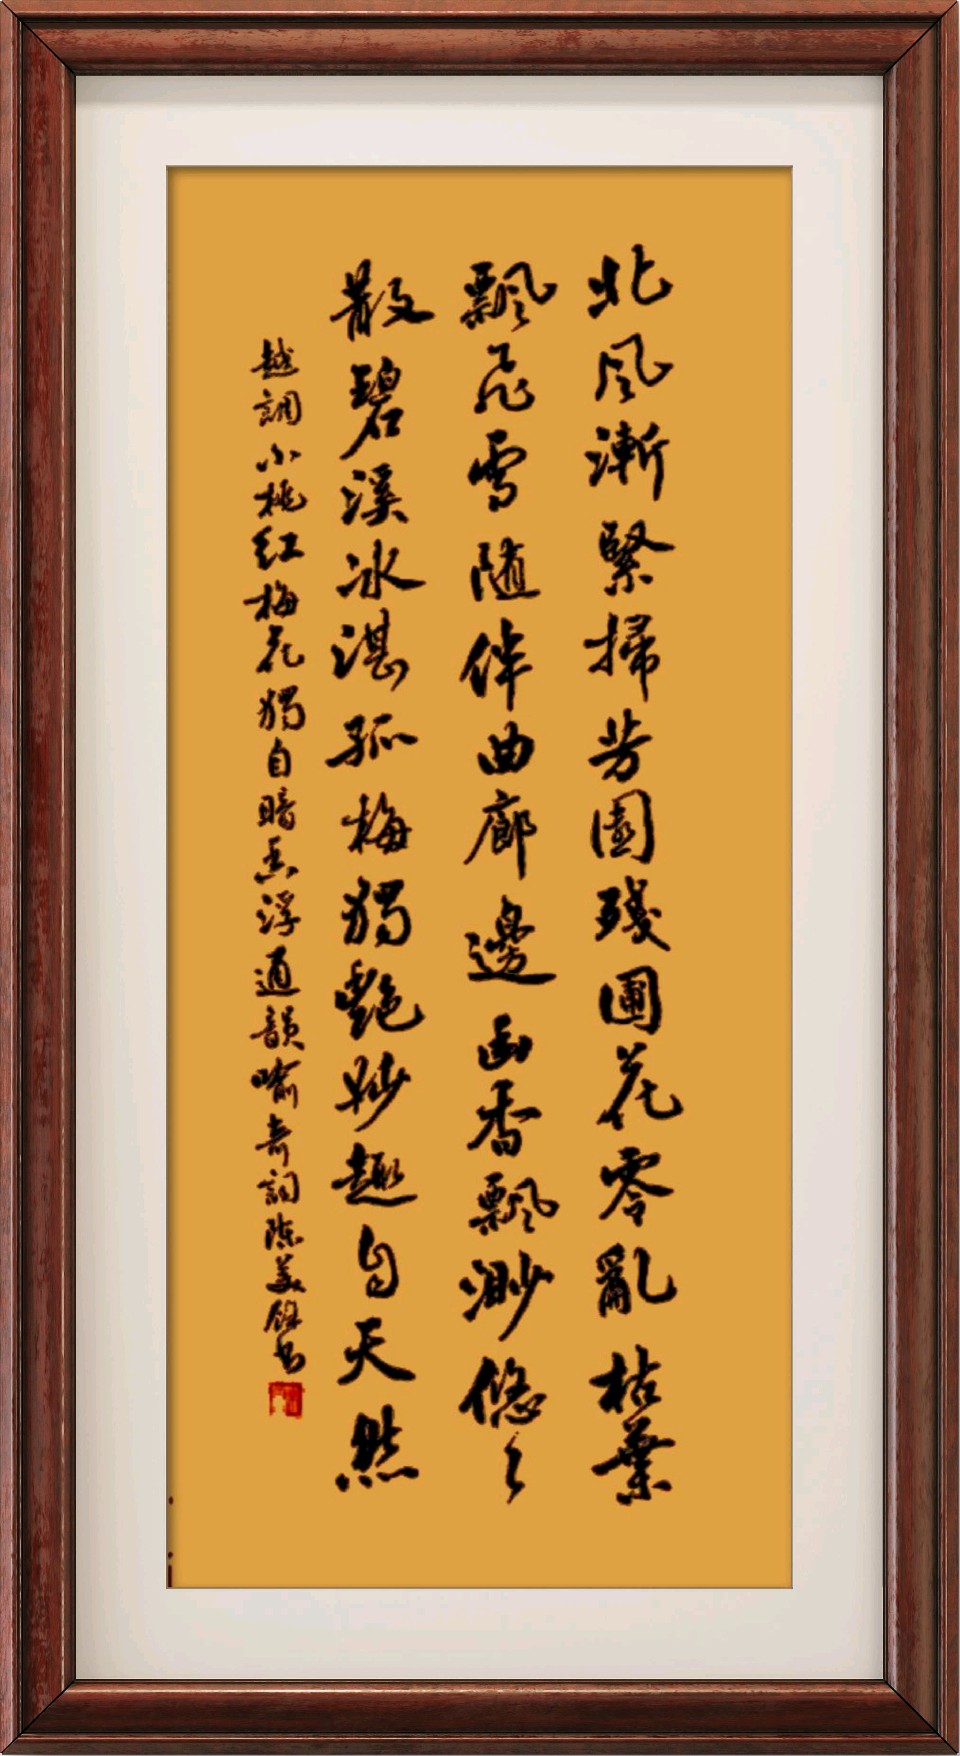 北風漸緊掃芳園殘圃花零亂枯葉
飄飛雪随伴曲廊邊幽香飄渺悠々
散碧溪冰湛孤梅獨艷妙趣自天然
越調小桃红梅花獨自暗香浮通韻喻奇詞陈美錦书